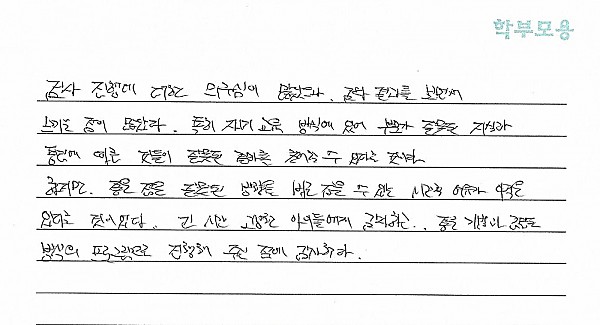 학부모용
검사 진행에 대한 의구심이 많았다. 검사 결과를 보면서
느끼는 점이 많았다. 특히 자녀 교육 방식에 있어 부모가 잘못된 지식과
잘못된 결과를 수 있다는 것이다
하지만, 좋은 점을 잘못된 방향을 바로 잡을 수 있는 시간적 여유가
있다는 것이었다. 긴 시간 고생한 아이들에게 감사하는.. 좋은
방식의 프로그램으로 진행해 주신 점에 감사하다.